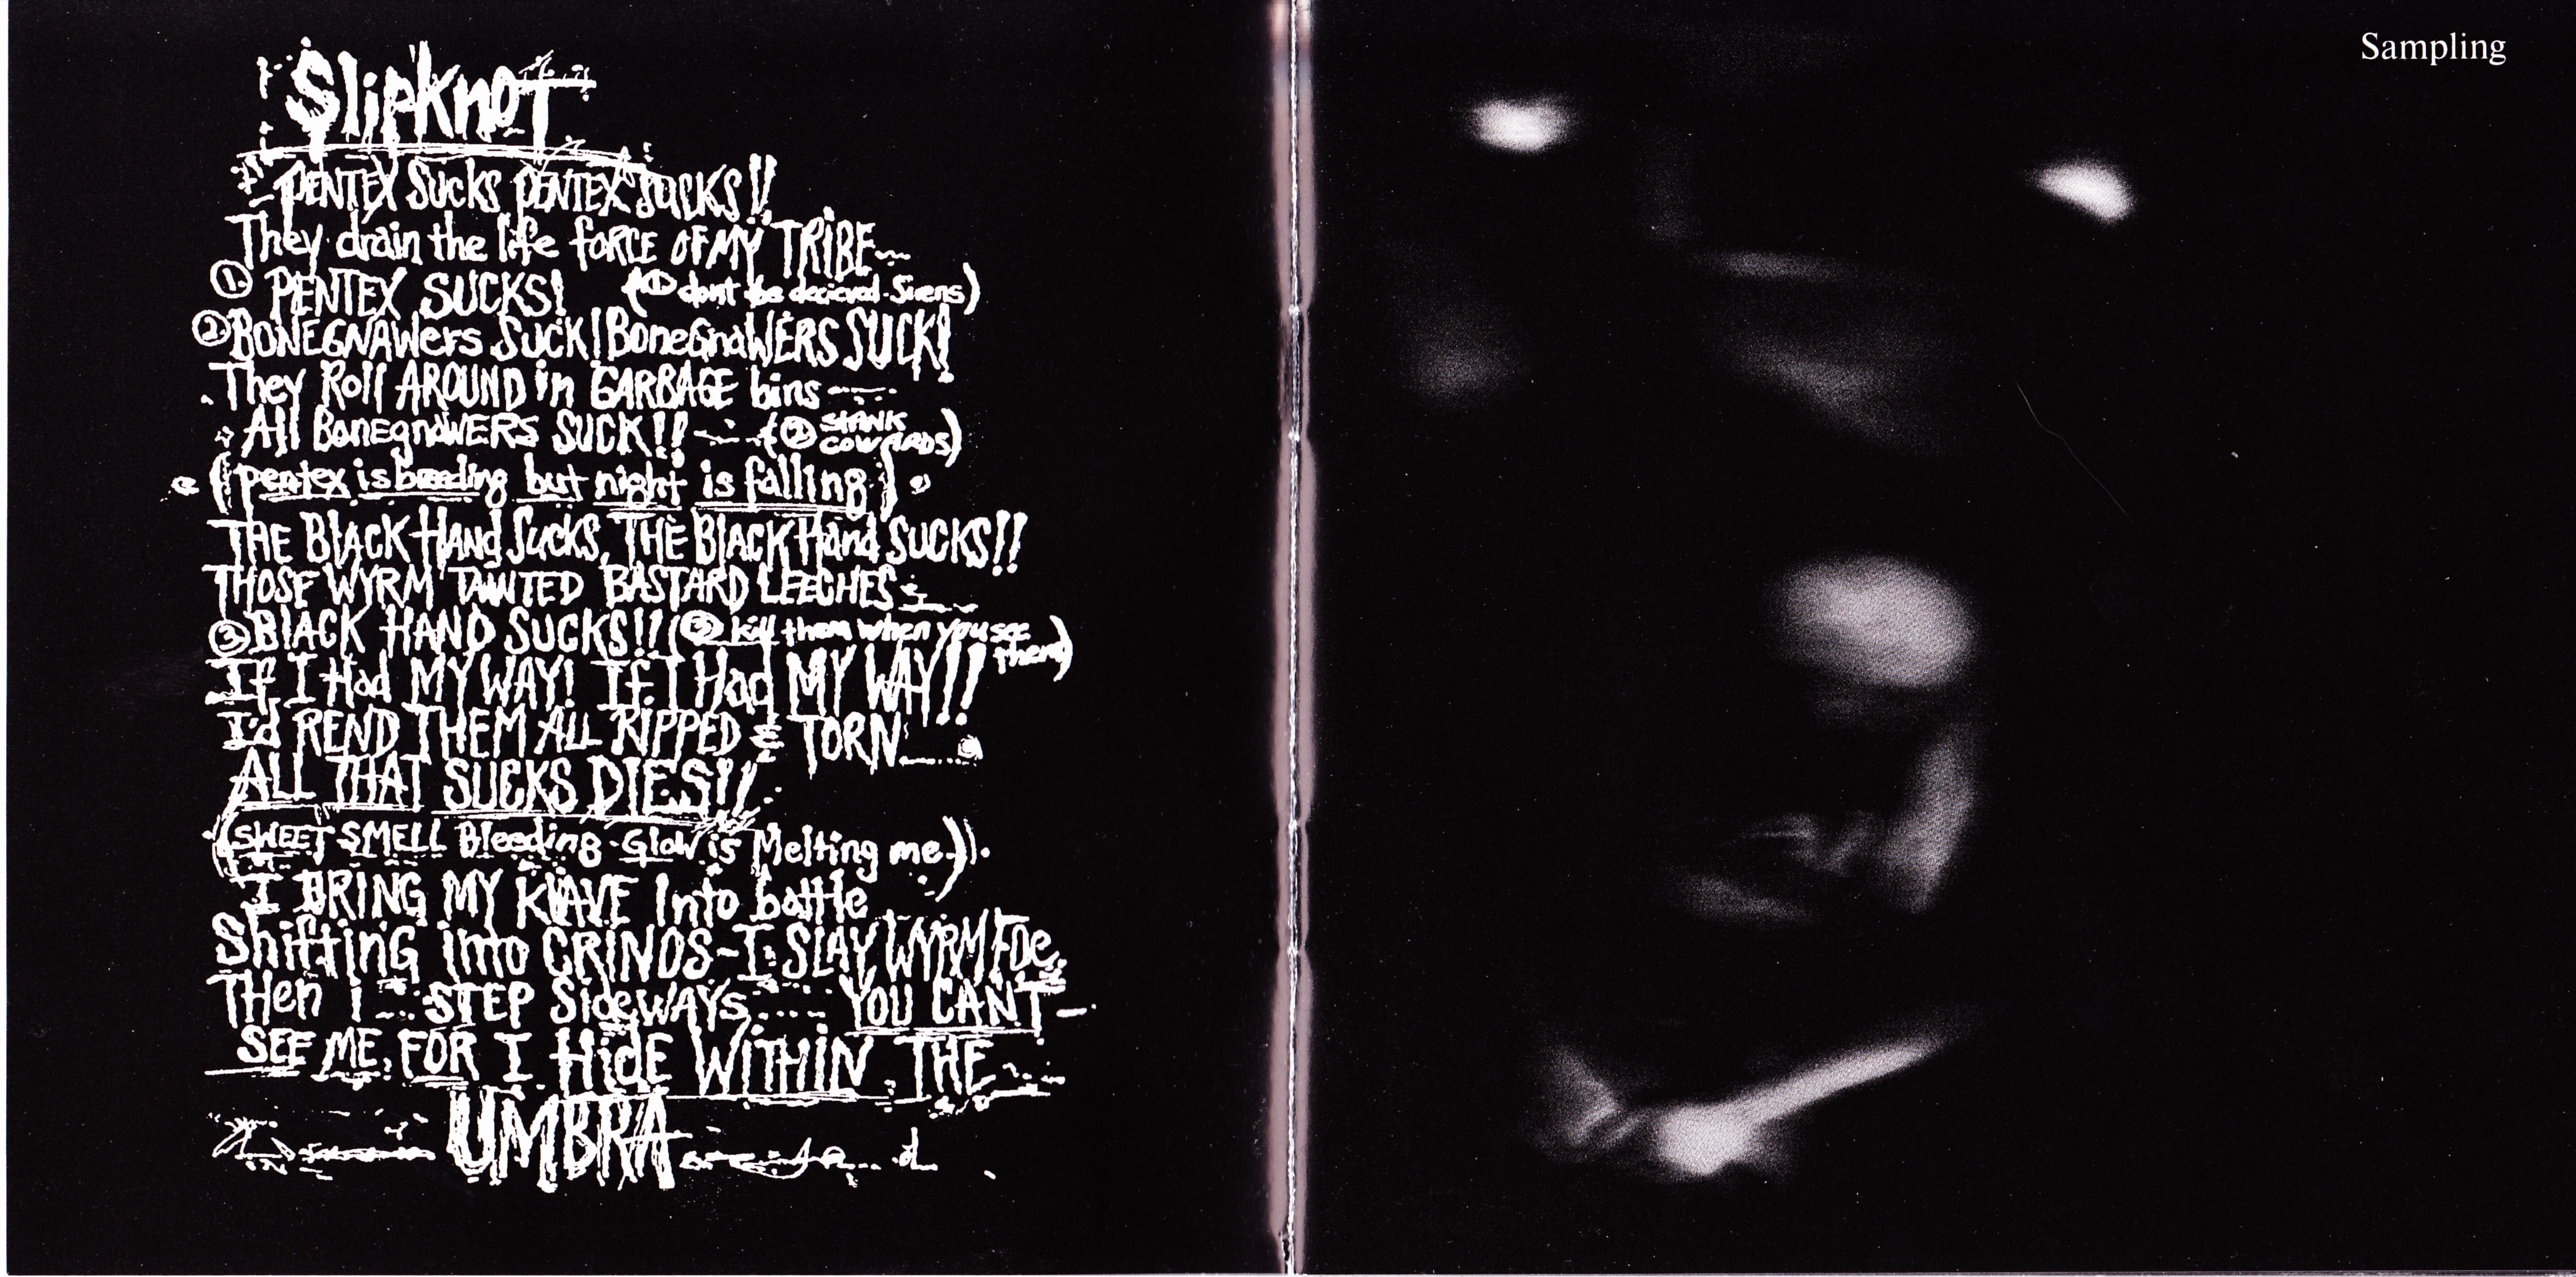 Slipknot
PENTEX SUCKS PENTEX SUCKS!!
They drain the life FORCE OF MY TRIBE
① PENTEX SUCKS! (① dont be decieved-Sirens)
② BONEGNAWers SUCK! BoneGnaWERS SUCK!
They Roll AROUND in GARBAGE bins
All BonegnaWERS SUCK!! (② STANK COWARDS)
(pentex is breeding but night is falling)
THE BlACK HANd Sucks, THE BlACK Hand SUCKS!!
THOSE WYRM TAINTED BASTARD LEECHES
③ BlACK HAND SUCKS!! (③ kill them when you see them)
If I Had MY WAY! If I Had MY WAY!!
I'd REND THEM ALL RIPPED & TORN
ALL THAT SUCKS DIES!!
(SWEET SMELL Bleeding-Glow is Melting me)
I BRING MY KlAVE Into battle
Shifting into CRINOS-I SLAY WYRM FOE,
THen i... STEP SideWAYs.... YOU CANT-
SEE ME, FOR I HidE WITHIN THE
UMBRA
Sampling